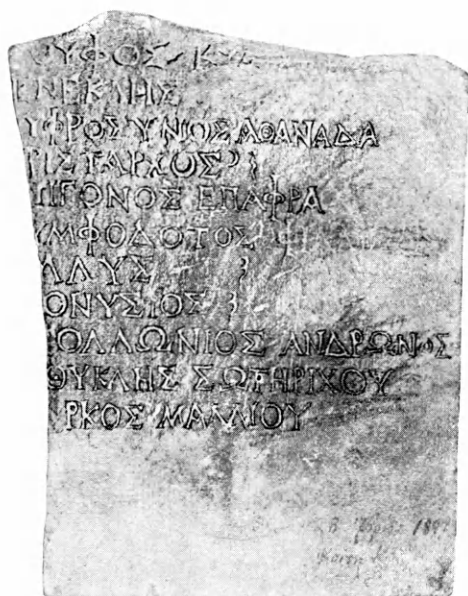 ΟΥΦΟΣ ΚΥ
ΕΝΕΚΛΗΣ
ΥΦΡΟΣΥΝΙΟΣ ΑΘΑΝΑΔΑ
ΤΙΣΤΑΡΧΟΣ
ΠΙΓΟΝΟΣ ΕΠΑΦΡΑ
ΥΜΦΟΔΟΤΟΣ
ΛΛΥΣ
ΟΝΥΣΙΟΣ
ΟΛΛΩΝΙΟΣ ΑΝΔΡΩΝΟΣ
ΘΥΚΛΗΣ ΣΩΤΗΡΙΧΟΥ
ΡΚΟΣ ΜΑΛΛΙΟΥ